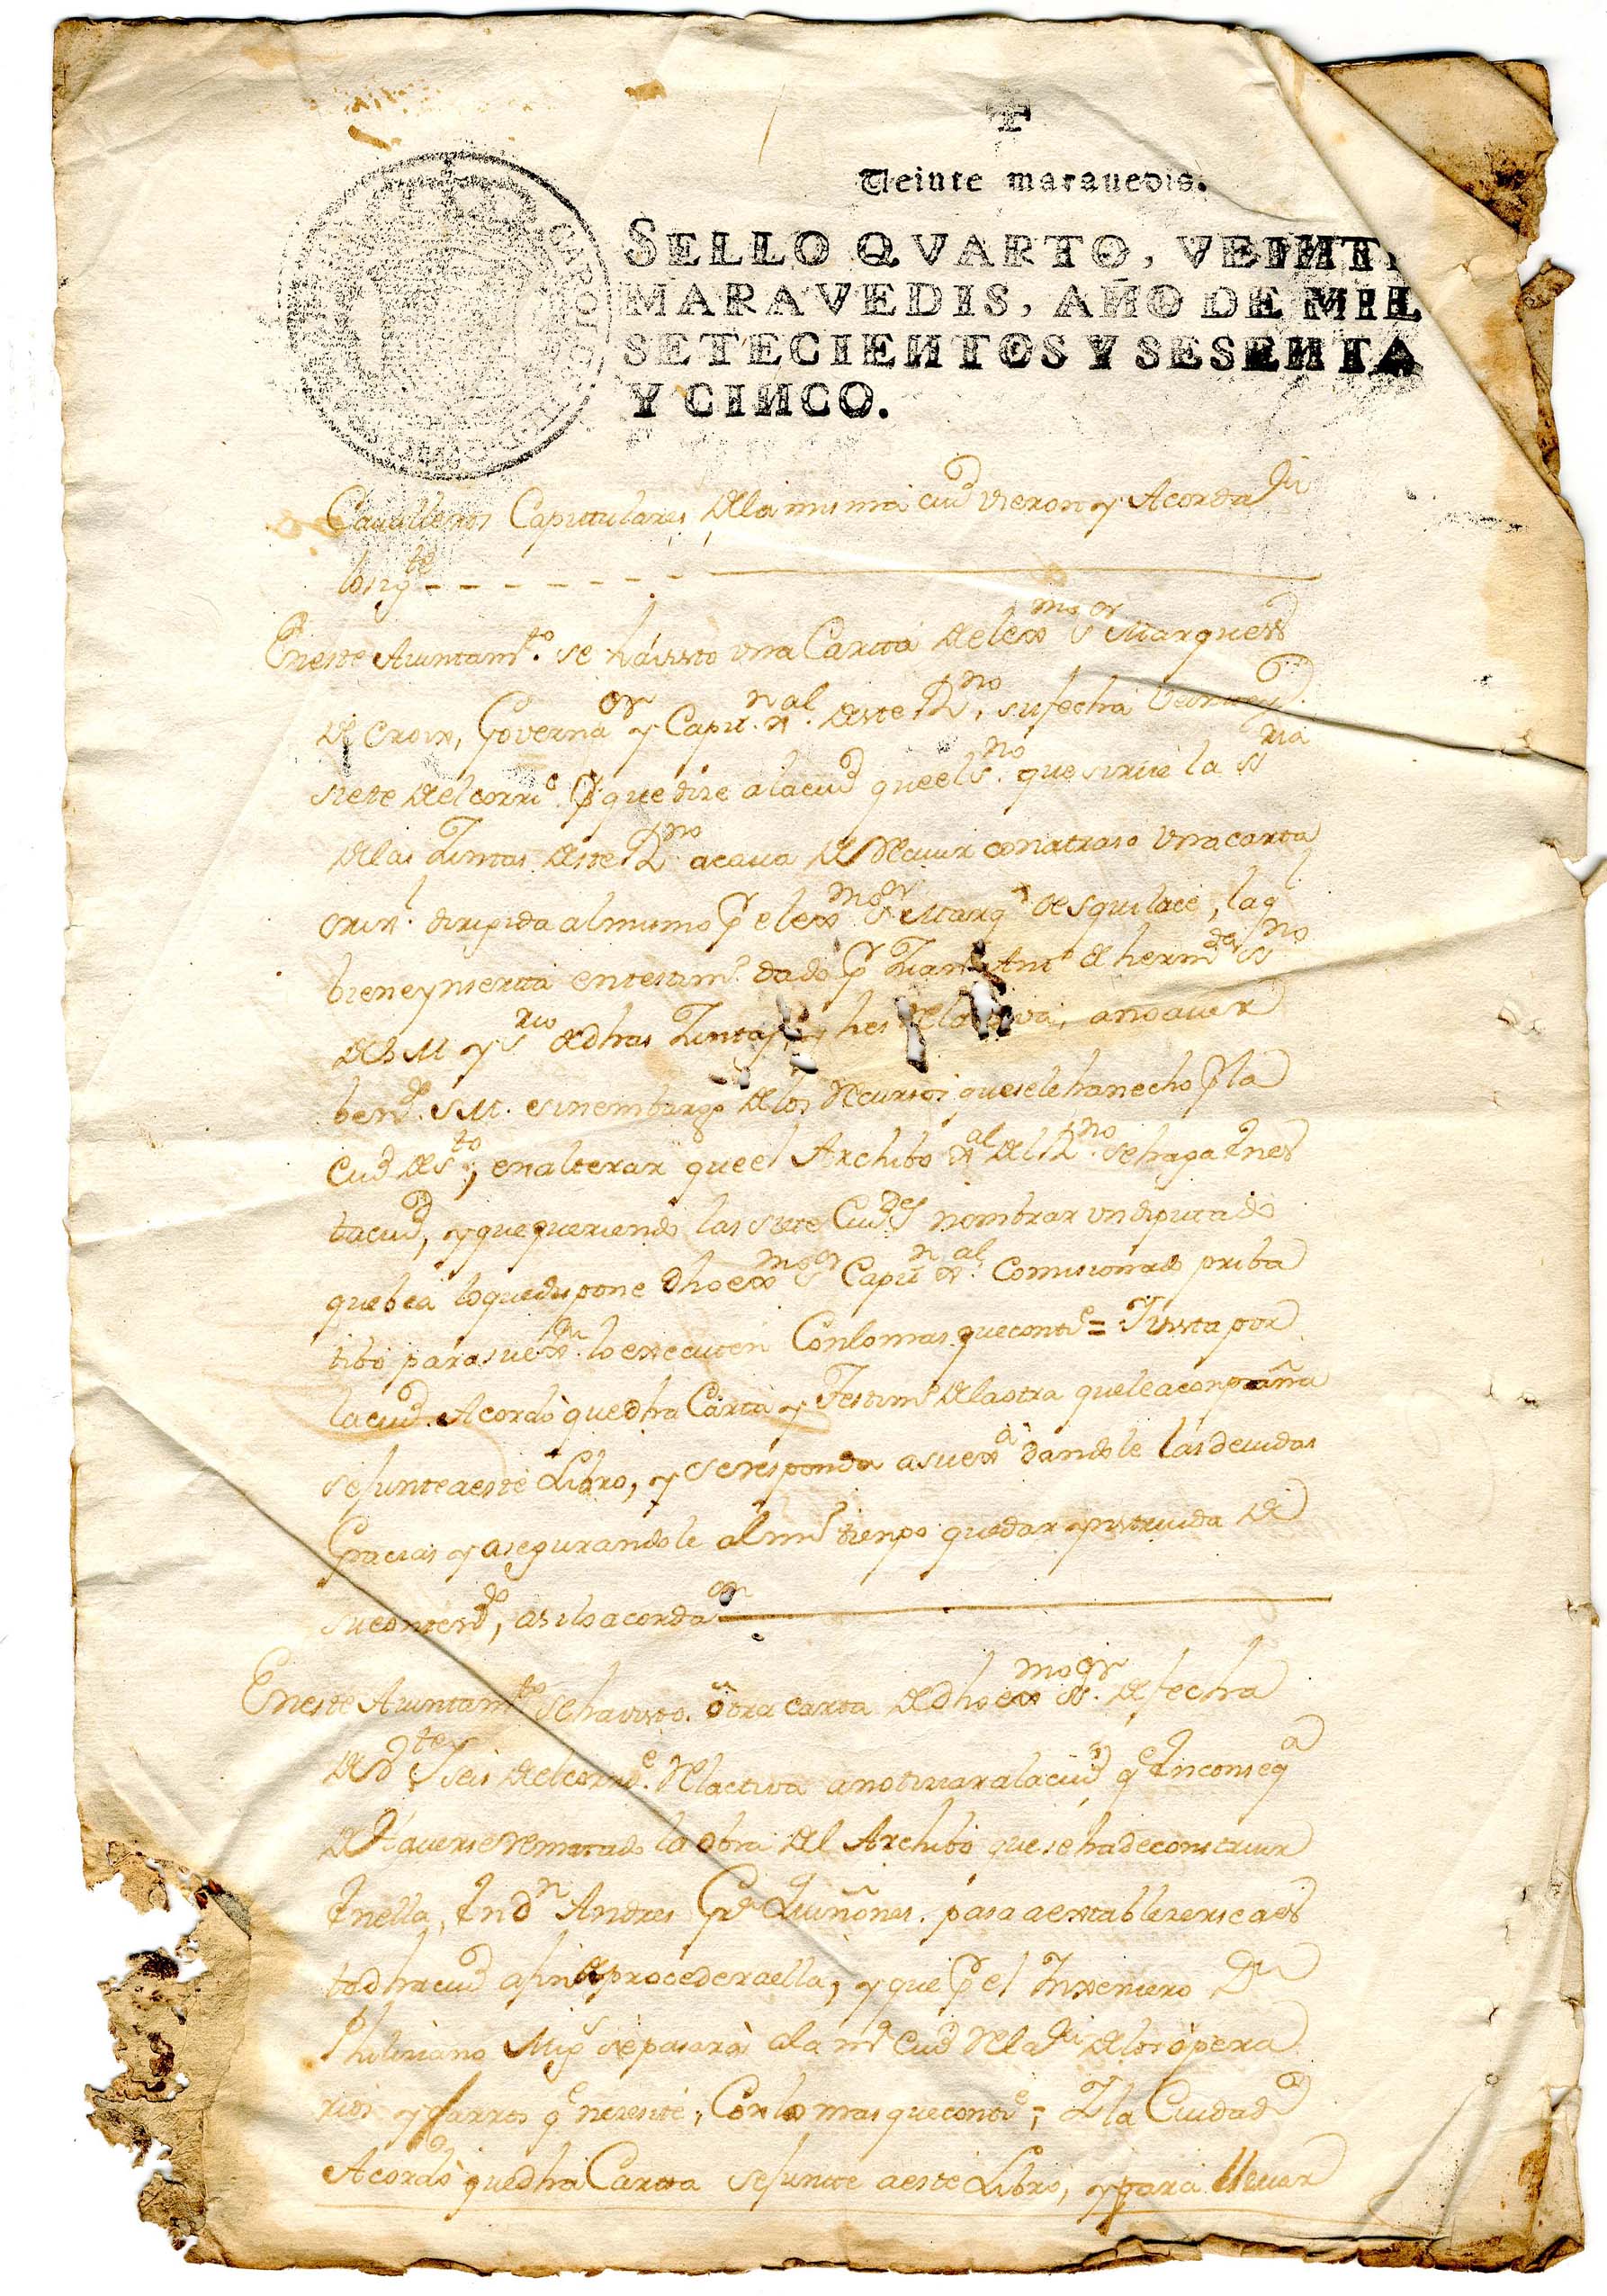 Veinte maravedis.
SELLO QVARTO, VEINTE
MARAVEDIS, AÑO DE MIL
SETECIENTOS Y SESENTA
Y CINCO.
CAROLUS
Cavalleros Capittulares de la misma ciud vieron y Acorda
lo sigte
En este Aiuntamto. se há visto vna Cartta del exmo Sor Marques
de Croix, Governaor y Capitn. xal. deste Rno, su fecha Veinte y
siete del corrte que dize a la ciud que el sno. que sirue la ssria
de las Juntas deste Rno acaua de Reciuir con atraso vna carta
orixl. dirigida al mismo pr el exmo Sor Marqs de Squilace, la ql
biene ynsertta en testimo. dado pr Juan Anto de hermdes ssno
de S M y srio de dhas Juntas, y hes Relativa, a no auer
benido S M. sin embargo de los Recursos que se le han echo pr la
Ciud de Sto, en alterar que el Archibo xal del Rno. se haga en es
ta ciud, y que queriendo las siete Ciudes nombrar vn diputado
que bea lo que dispone dho exmo Sor Capitn xal. Comisionado priba
tibo para su exon. lo executen Con lo mas que conte = Y vista por
la ciud. Acordò que dha Carta y Testimo de la otra que le aconpaña
se junte a este Libro, y se responda a su exa dandole las deuidas
Gracias y asegurandole al mmo tienpo quedar ynstruida de
su contendo, asi lo acordaon
En este Aiuntamto se ha visto otra carta de dho exmo ssor. de fecha
de Vte y seis del corrte. Relactiva a noticiar a la ciud qe en conseqa
de Hauerse rematado la obra del Archibo que se ha de construir
en ella, en dn Andres Gra Quiñones. pasa a extablezerse a es
ta dha ciud a fin de proceder a ella, y que pr el Inxeniero Dn
Pheliziano Migs se pasará a la ma Ciud Relaon de los opera
rios y Carros qe nezesite, Con lo mas que conte; Y la Ciudad
Acordò que dha Cartta se junte a este Libro, y para lleuar